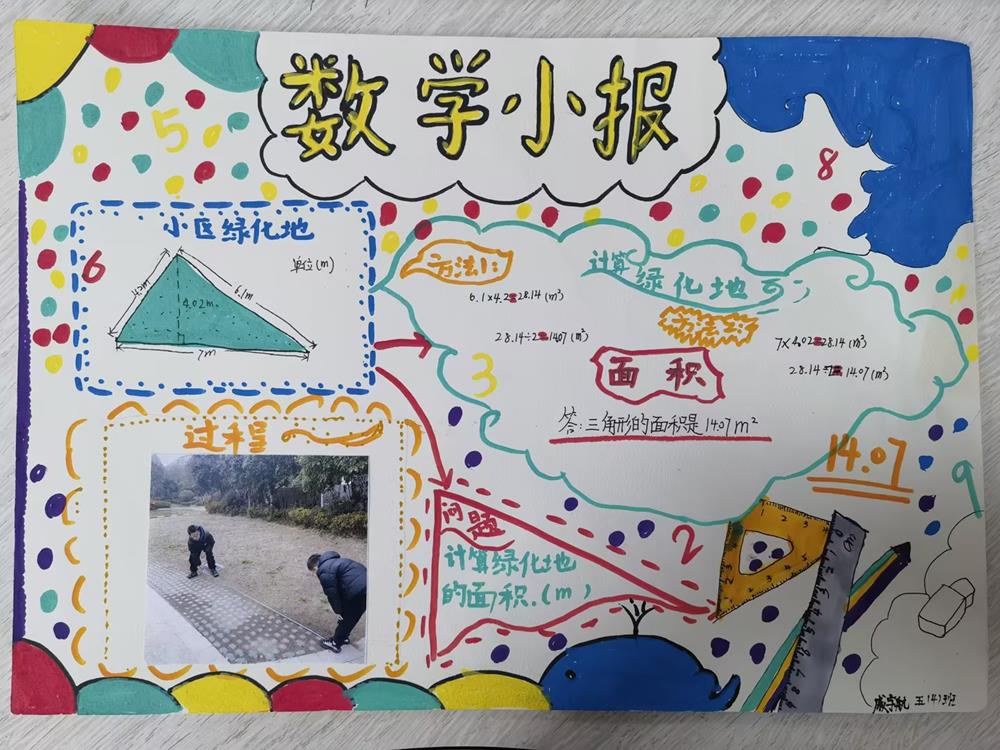 数学小报
5
8
小区绿化地
单位(m)
6
4.2m
4.02m
6.1m
7m
方法1:
6.1×4.2=28.14(m²)
28.14÷2=1407(m²)
计算绿化地
方法二:
7×4.02=28.14(m²)
28.14÷2=14.07(m²)
面积
3
答:三角形的面积是14.07m²
14.07
9
过程
问题
计算绿化地
的面积.(m)
2
五(4)班